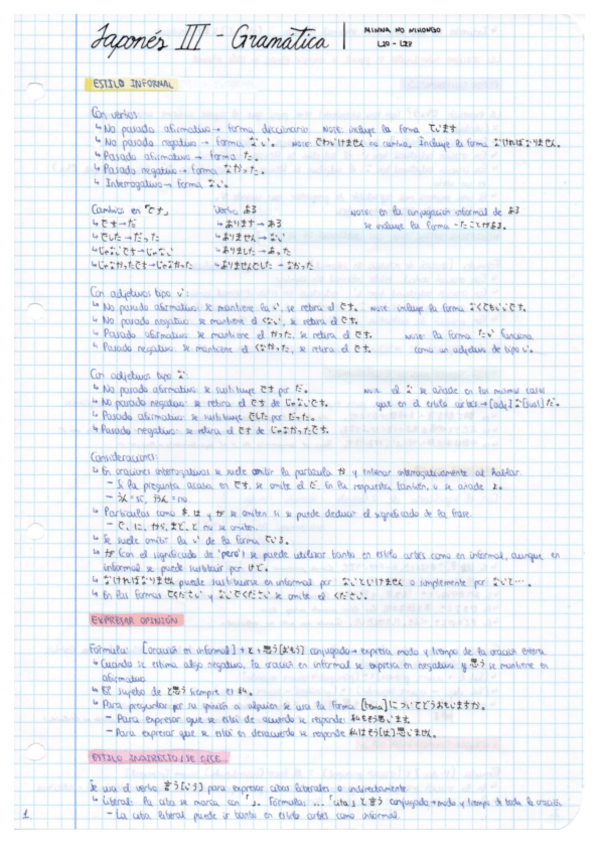 Japonés III - Gramática | MINNA NO NIHONGO
L20 - L24
ESTILO INFORMAL
Con verbos:
↳ No pasado afirmativo → forma diccionario NOTE: incluye la forma ています
↳ No pasado negativo → forma ない. NOTE: てわいけません no cambia. Incluye la forma なければなりません。
↳ Pasado afirmativo → forma た。
↳ Pasado negativo → forma なかった。
↳ Interrogativo → forma ない。
Cambios en「です」 Verbo ある NOTE: en la conjugación informal de ある
↳ です→だ ↳ あります→ある se incluye la forma -たことがある。
↳ でした→だった ↳ ありません→ない
↳ じゃないです→じゃない ↳ ありました→あった
↳ じゃなかったです→じゃなかった ↳ ありませんでした→なかった
Con adjetivos tipo い:
↳ No pasado afirmativo: se mantiene la い, se retira el です. NOTE: incluye la forma なくてもいいです。
↳ No pasado negativo: se mantiene el くない, se retira el です.
↳ Pasado afirmativo: se mantiene el かった, se retira el です. NOTE: la forma たい funciona
↳ Pasado negativo: se mantiene el くなかった, se retira el です. como un adjetivo de tipo い.
Con adjetivos tipo な:
↳ No pasado afirmativo: se sustituye です por だ. NOTE: el な se añade en los mismos casos
↳ No pasado negativo: se retira el です de じゃないです. que en el estilo cortés → [adj] な [sust] だ.
↳ Pasado afirmativo: se sustituye でした por だった.
↳ Pasado negativo: se retira el です de じゃなかったです.
Consideraciones:
↳ En oraciones interrogativas se suele omitir la partícula か y entonar interrogativamente al hablar.
- Si la pregunta acaba en です, se omite el だ. En la respuesta también, o se añade よ.
- うん = sí, ううん = no
↳ Partículas como を, は y が se omiten si se puede deducir el significado de la frase.
- で, に, から, まで, と no se omiten.
↳ Se suele omitir la い de la forma ている.
↳ が (con el significado de 'pero') se puede utilizar tanto en estilo cortés como en informal, aunque en
informal se puede sustituir por けど.
↳ なければなりません puede sustituirse en informal por ないといけません o simplemente por ないと….
↳ En las formas てください y ないでください se omite el ください.
EXPRESAR OPINIÓN
Fórmula: [oración en informal] + と + 思う[おもう] conjugado → expresa modo y tiempo de la oración entera.
↳ Cuando se estima algo negativo, la oración en informal se expresa en negativo y 思う se mantiene en
afirmativo.
↳ El sujeto de と思う siempre es 私.
↳ Para preguntar por su opinión a alguien se usa la forma [tema]についてどうおもいますか.
- Para expresar que se está de acuerdo se responde: 私もそう思います
- Para expresar que se está en desacuerdo se responde 私はそう[は]思いません.
ESTILO INDIRECTO: SE DICE...
Se usa el verbo 言う[いう] para expresar citas literales o indirectamente.
↳ Literal: la cita se marca con「」. Fórmula: ...「cita」と言う conjugado → modo y tiempo de toda la oración
- La cita literal puede ir tanto en estilo cortés como informal.
1